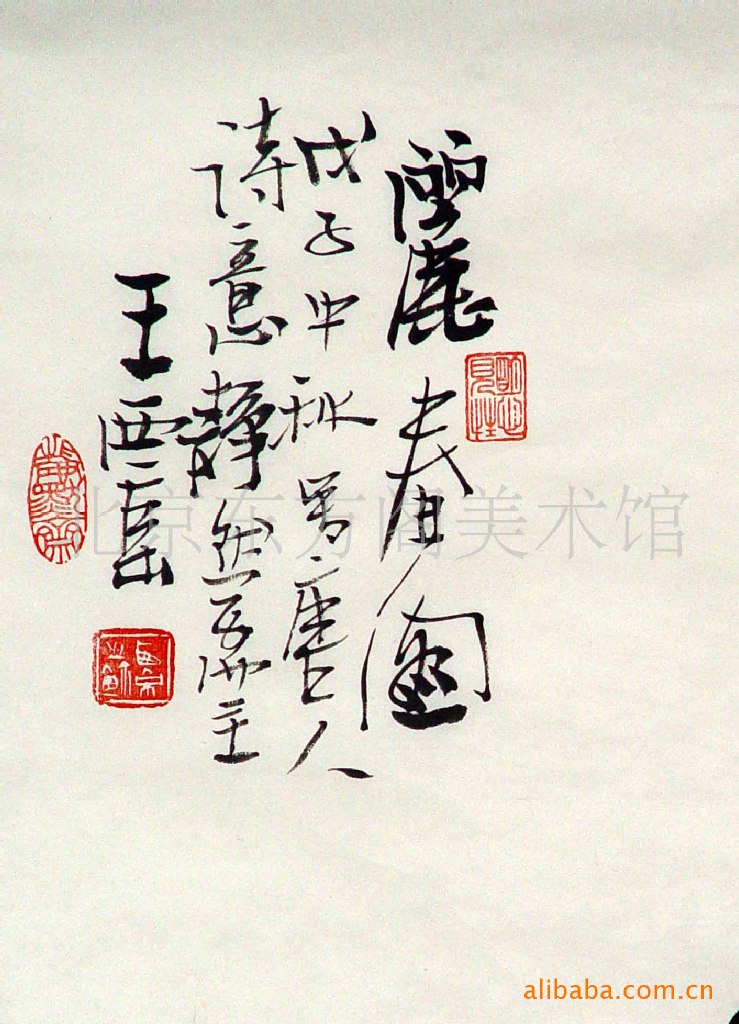 麗春图
戊子中秋写唐人
诗意静然斋主
王西岳
北京东方阁美术馆
alibaba.com.cn